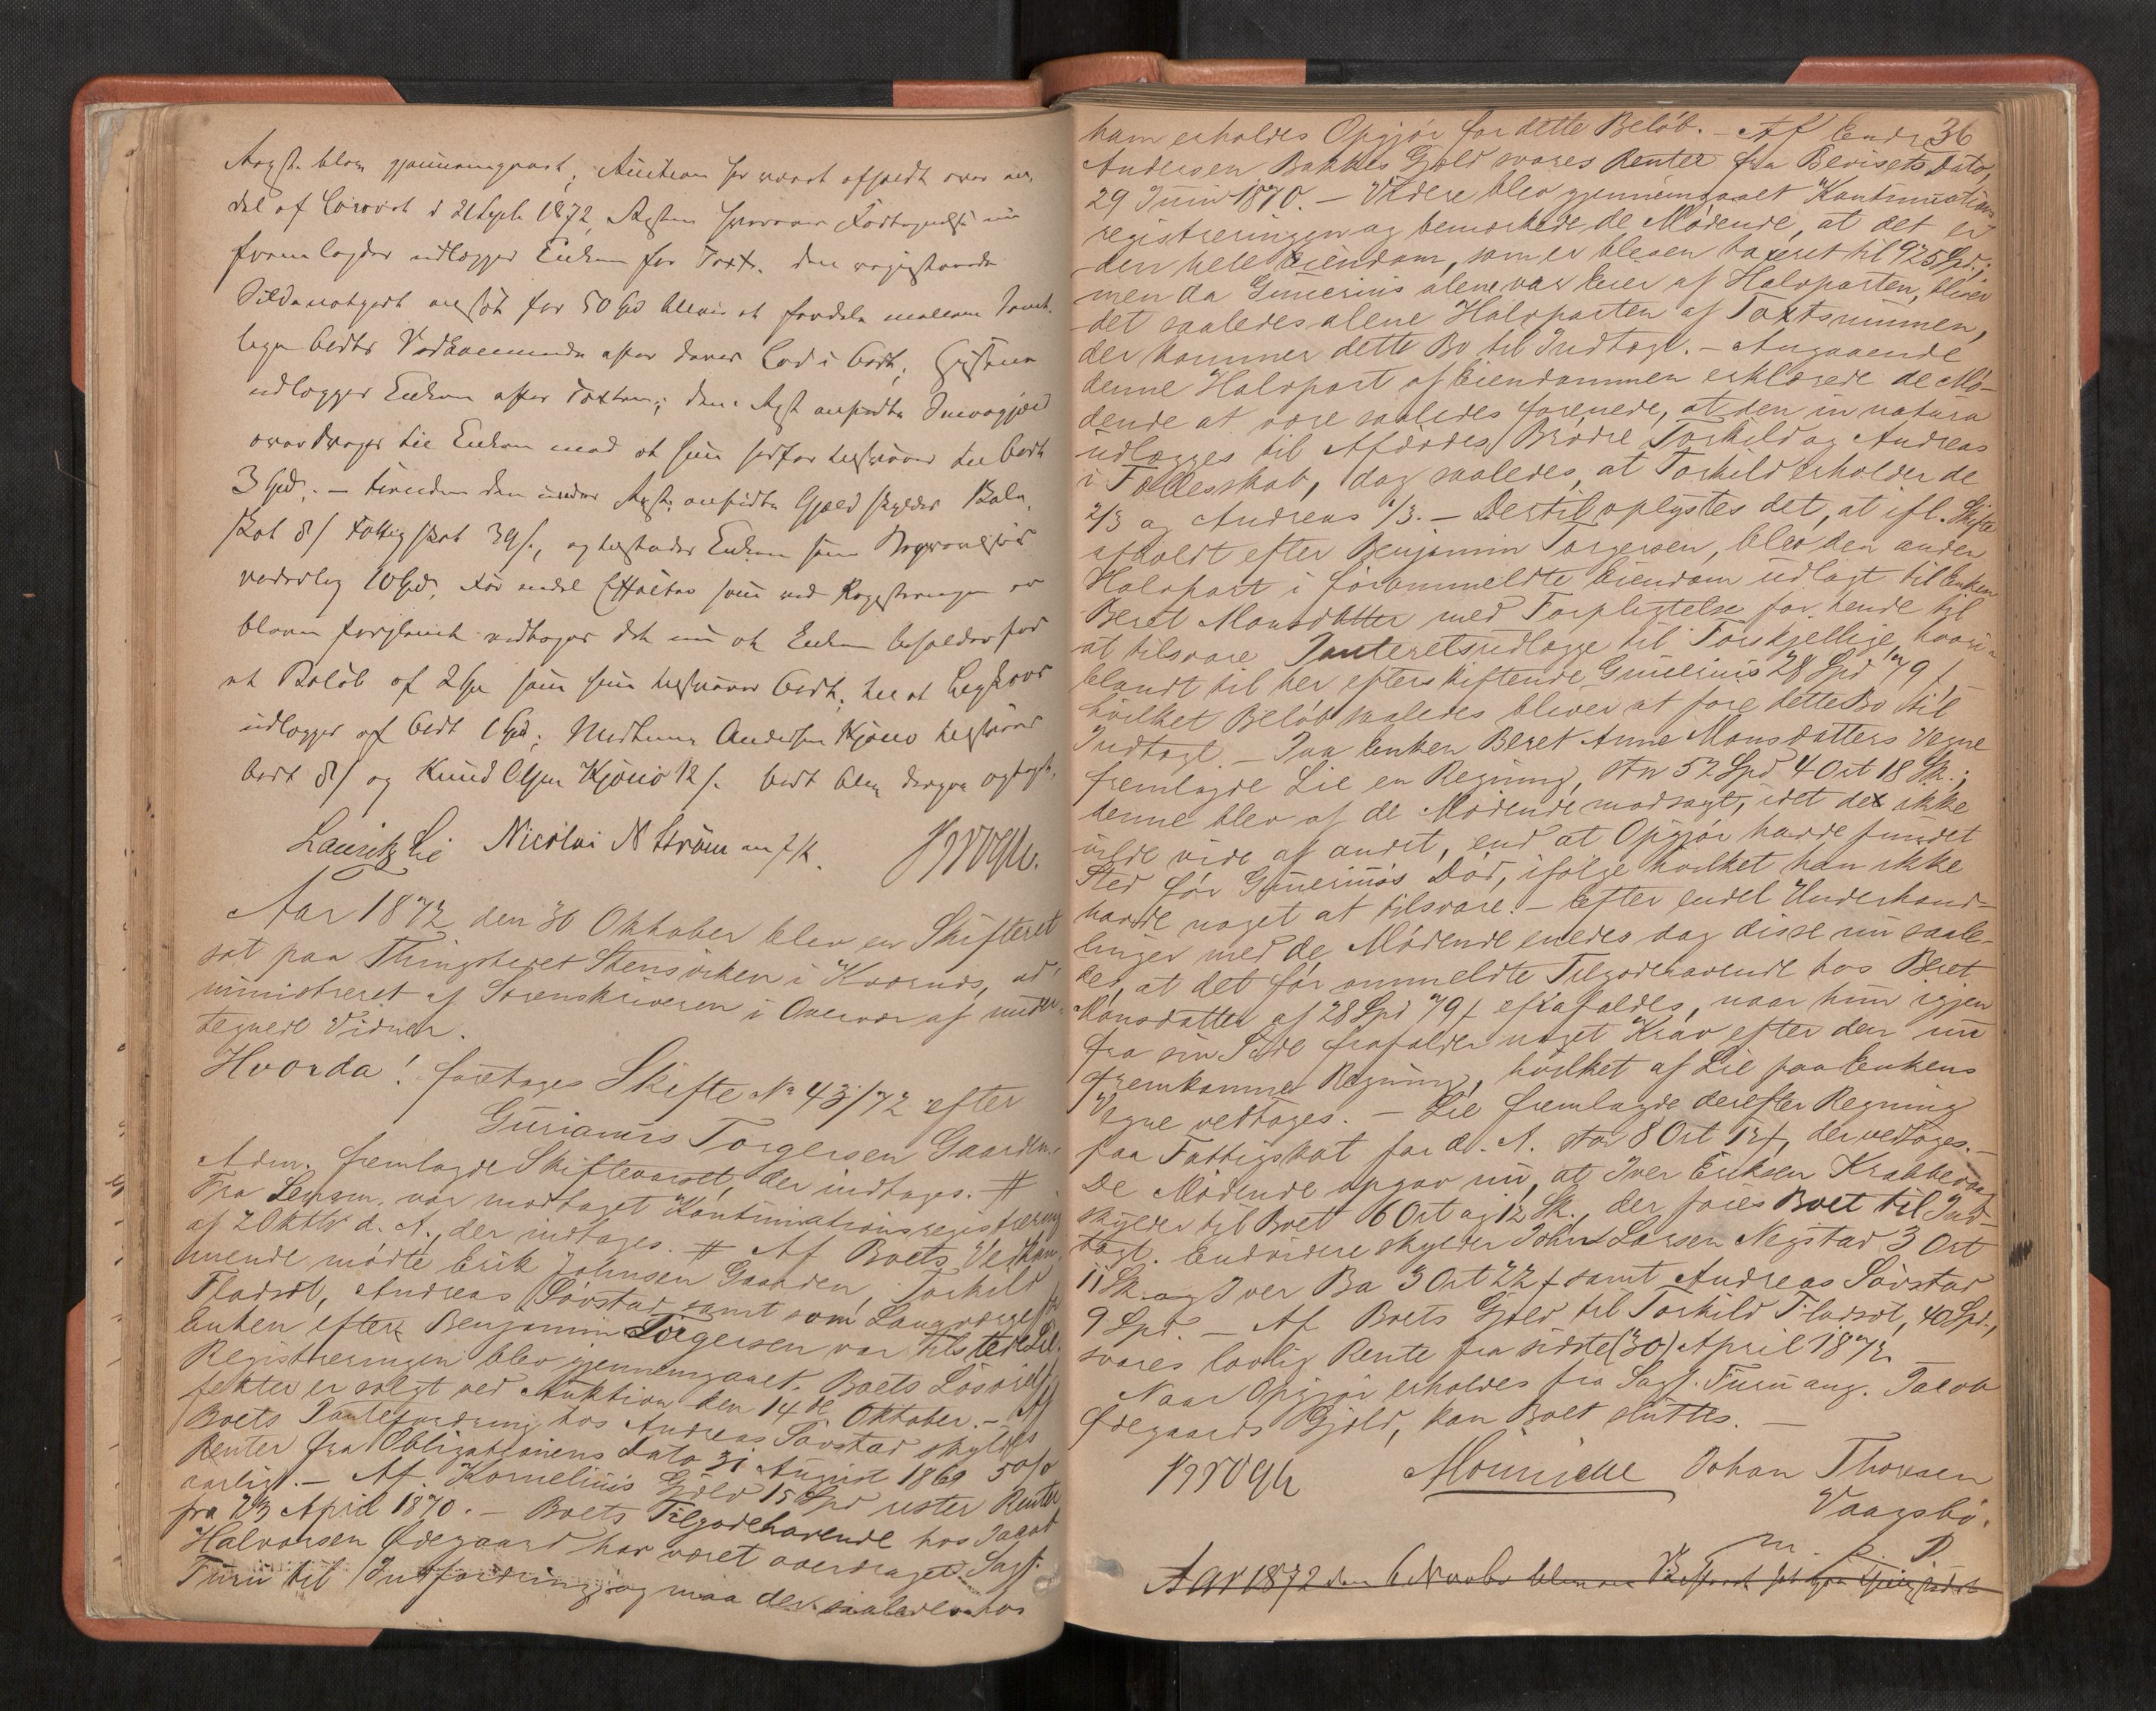 Regst. blev gjennemgaaet; Auction har været afholdt over en
del af Løsøret d 21 Septr 1872,
fremlagdes udlægges Enken for Taxt. den registrerede
for 50 Spd bliver at fordele mellem samt
lige Boets Vedkommende efter deres Lod i Boet;
udlægges Enken efter Taxten; den i Regst anførte
overdrages til Enken mod at hun derfor tilsvarer til Boet
3 Spd. – den under Regst. anførte Gjæld skyldes
skat 8 / Fattigskat 39 /., og tilstaaes Enken som
vederlag 10 Spd. For endel Effecter som ved Registreringen er
bleven forglemt vedtoges det nu at Enken beholder for
et Beløb af 2 Spd som hun tilsvarer Boet; til et
udlægges af Boet 1 Spd; Andersen Kjønø tilsvarer
Boet 8 / og Knud Olsen Kjønø 12 /. Boet blev derpaa optaget.
Lauritz Lie Nicolai N Strøm m. f. P. Krogh.
Aar 1872 den 30 Oktober blev en Skifteret
sat paa Thingstedet Stensviken i Kvernæs, ad-
ministreret af Sorenskriveren i Overvær af under-
tegnede Vidner.
Hvorda! foretages Skifte No 43/72 efter
Gunerius Torgersen Gaarden.
Adm. fremlagde Skiftevarslet, der indtages. #
Fra Lensm. var modtaget Kontinuationsregistrering
af 2 Oktbr d. A., der indtages. # Af Boets Vedkom-
mende mødte Erik Johnsen Gaarden, Torkild
Fladsæt, Andreas Søvstad samt som Laugværge for
Enken efter Benjamin Torgersen var tilstede Lie.
Registreringen blev gjennemgaaet. Boets Løsøreef-
fekter er solgt ved Auktion den 14de Oktober. – Af
Boets Pantefordring hos Andreas Søvstad skyldes
Renter fra Obligationens Dato 31 August 1869 5 o/o
aarligt. – Af Kornelius Gjæld 15 Spd rester Renter
fra 23 April 1870. – Boets Tilgodehavende hos Jacob
Halvorsen Ødegaard har været overdraget Sagf.
Furu til Indfordring og maa der saaledes hos
36
ham erholdes Opgjør for dette Beløb. – Af Endre
Andersen Bakkes Gjæld svares Renter fra Bevisets Dato,
29 Juni 1870. – Videre blev gjennemgaaet Kontinuations
registreringen og bemærkede de Mødende, at det er
den hele Eiendom, som er bleven taxeret til 925 Spd.;
men da Gunerius alene var Eier af Halvparten, bliver
det saaledes alene Halvparten af Taxtsummen,
der kommer dette Bo til Indtægt. – Angaaende
denne Halvpart af Eiendommen erklærede de Mø-
dende at være saaledes forenede, at den in natura
udlægges til Afdødes Brødre Torkild og Andreas
i Fællesskab, dog saaledes, at Torkild erholder de
2/3 og Andreas 1/3. – Dertil oplystes det, at ifl. Skifte
afholdt efter Benjamin Torgersen, blev den anden
Halvpart i forommeldte Eiendom udlagt til Enken
Beret Monsdatter med Forpligtelse for hende til
at tilsvare Panteretsudlægge til Forskjellige, hvori-
blandt til her efterskiftende Gunerius 28 Spd " 9 /
hvilket Beløb saaledes bliver at føre dette Bo til
Indtægt. – Paa Enken Beret Anne Monsdatters Vegne
fremlagde Lie en Regning, stor 52 Spd 4 Ort 18 Sk.;
denne blev af de Mødende modsagt, idet de ikke
vilde vide af andet, end at Opgjør havde fundet
Sted før Gunerius's Død, ifølge hvilket han ikke
havde noget at tilsvare. – Efter endel Underhand-
linger med de Mødende enedes dog disse nu saale-
des, at det før ommeldte Tilgodehavende hos Beret
Monsdatter af 28 Spd " 9 / efrafaldes, naar hun igjen
fra sin Side frafalder noget Krav efter den nu
fremkomne Regning, hvilket af Lie paa Enkens
Vegne vedtages. – Lie fremlagde derefter Regning
paa Fattigskat for d. A. stor 8 Ort 12 /, der vedtages. –
De Mødende opgav nu, at Iver Eriksen Krabbe
skylder til Boet 6 Ort og 12 Sk., der føies Boet til Ind-
tægt. Endvidere skylder John Larsen Negstad 3 Ort
11 Sk. og Iver Bø 3 Ort 22 / samt Andreas Søvstad
9 Spd. – Af Boets Gjæld til Torkild Fladsæt, 40 Spd.,
svares lovlig Rente fra sidste (30) April 1872. –
Naar Opgjør erholdes fra Sagf. Furu ang. Jacob
Ødegaards Gjæld, kan Boet sluttes. –
Krogh Johan Thorsen
Vaagsbø.
m. p. P.
Aar 1872 den 6 Novbr blev en Skifteret sat paa